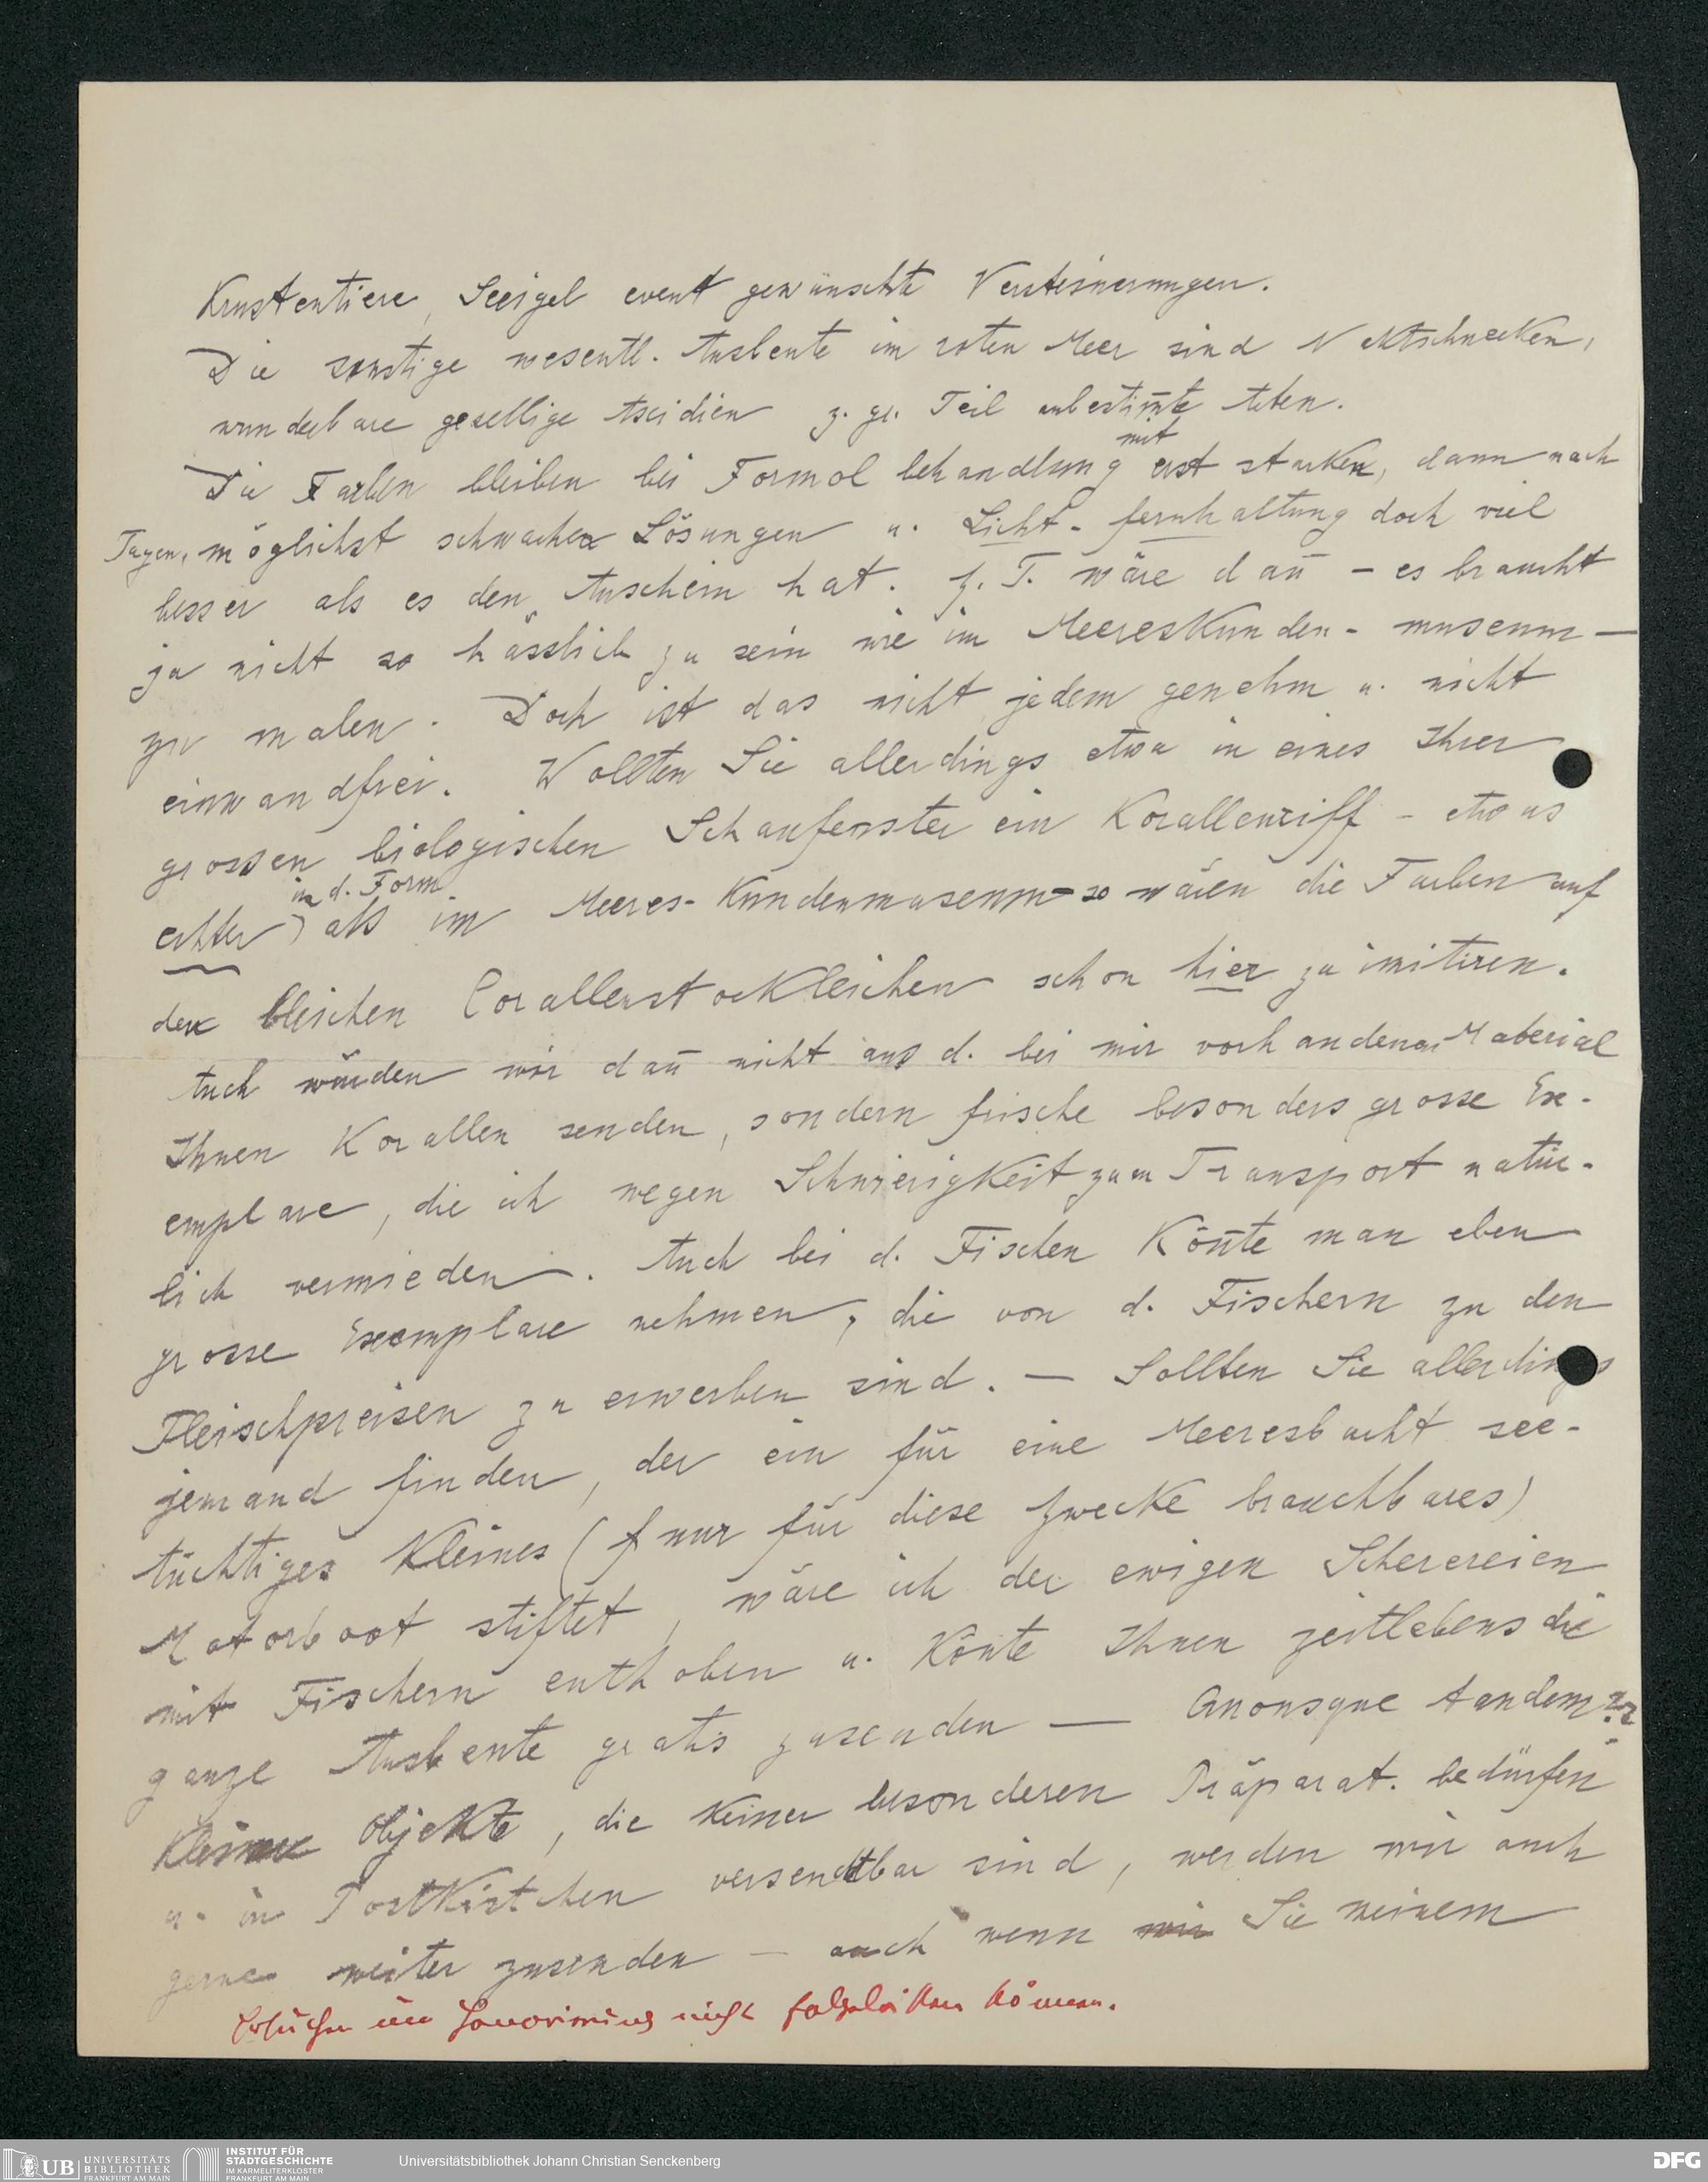 Krustentiere, Seeigel event gewünschte Versteinerungen.
Die sonstige wesentl. Ausbeute im roten Meer sind Nacktschnecken,
wunderbare gesellige Ascidien z. gr. Teil unbestim̄te Arten.
Die Farben bleiben bei Formol behandlung mit erst starken, dann nach
Tagen, möglichst schwachen Lösungen u. Licht-fernhaltung doch viel
besser als es den Anschein hat. Z. T. wäre dan̄ – es braucht
ja nicht so hässlich zu sein wie im Meereskunden-museum –
zu malen. Doch ist das nicht jedem genehm u. nicht
einwandfrei. Wollten Sie allerdings etwa in eines Ihrer
grossen biologischen Schaufenster ein Korallenriff – etwas
echter in d. Form) als im Meeres-Kundenmuseum – so wären die Farben auf
den bleichen Corallenstockleichen schon hier zu imitiren.
Auch würden wir dan̄ nicht aus d. bei mir vorhandenen Material
Ihnen Korallen senden, sondern frische besonders grosse Ex-
emplare, die ich wegen Schwierigkeit zum Transport natür-
lich vermieden. Auch bei d. Fischen kön̄te man eben
grosse Exemplare nehmen, die von d. Fischern zu den
Fleischpreisen zu erwerben sind. – Sollten Sie allerdings
jemand finden, der ein für eine Meeresbucht see-
tüchtiges kleines ( nur für diese Zwecke brauchbares)
Motorboot stiftet, wäre ich der ewigen Scherereien
mit Fischern enthoben u. kön̄te Ihnen zeitlebens die
ganze Ausbeute gratis zusenden – Quousque tandem??
Kleine Objekte, die keiner besonderen Präparat. bedürfen
u. in Postkistchen versendbar sind, werden wir auch
gerne weiter zusenden – auch wenn wir Sie meinem
Ersuchen um Honorirung nicht können.
UB UNIVERSITÄTS BIBLIOTHEK FRANKFURT AM MAIN
INSTITUT FÜR STADTGESCHICHTE IM KARMELITERKLOSTER FRANKFURT AM MAIN
Universitätsbibliothek Johann Christian Senckenberg
DFG